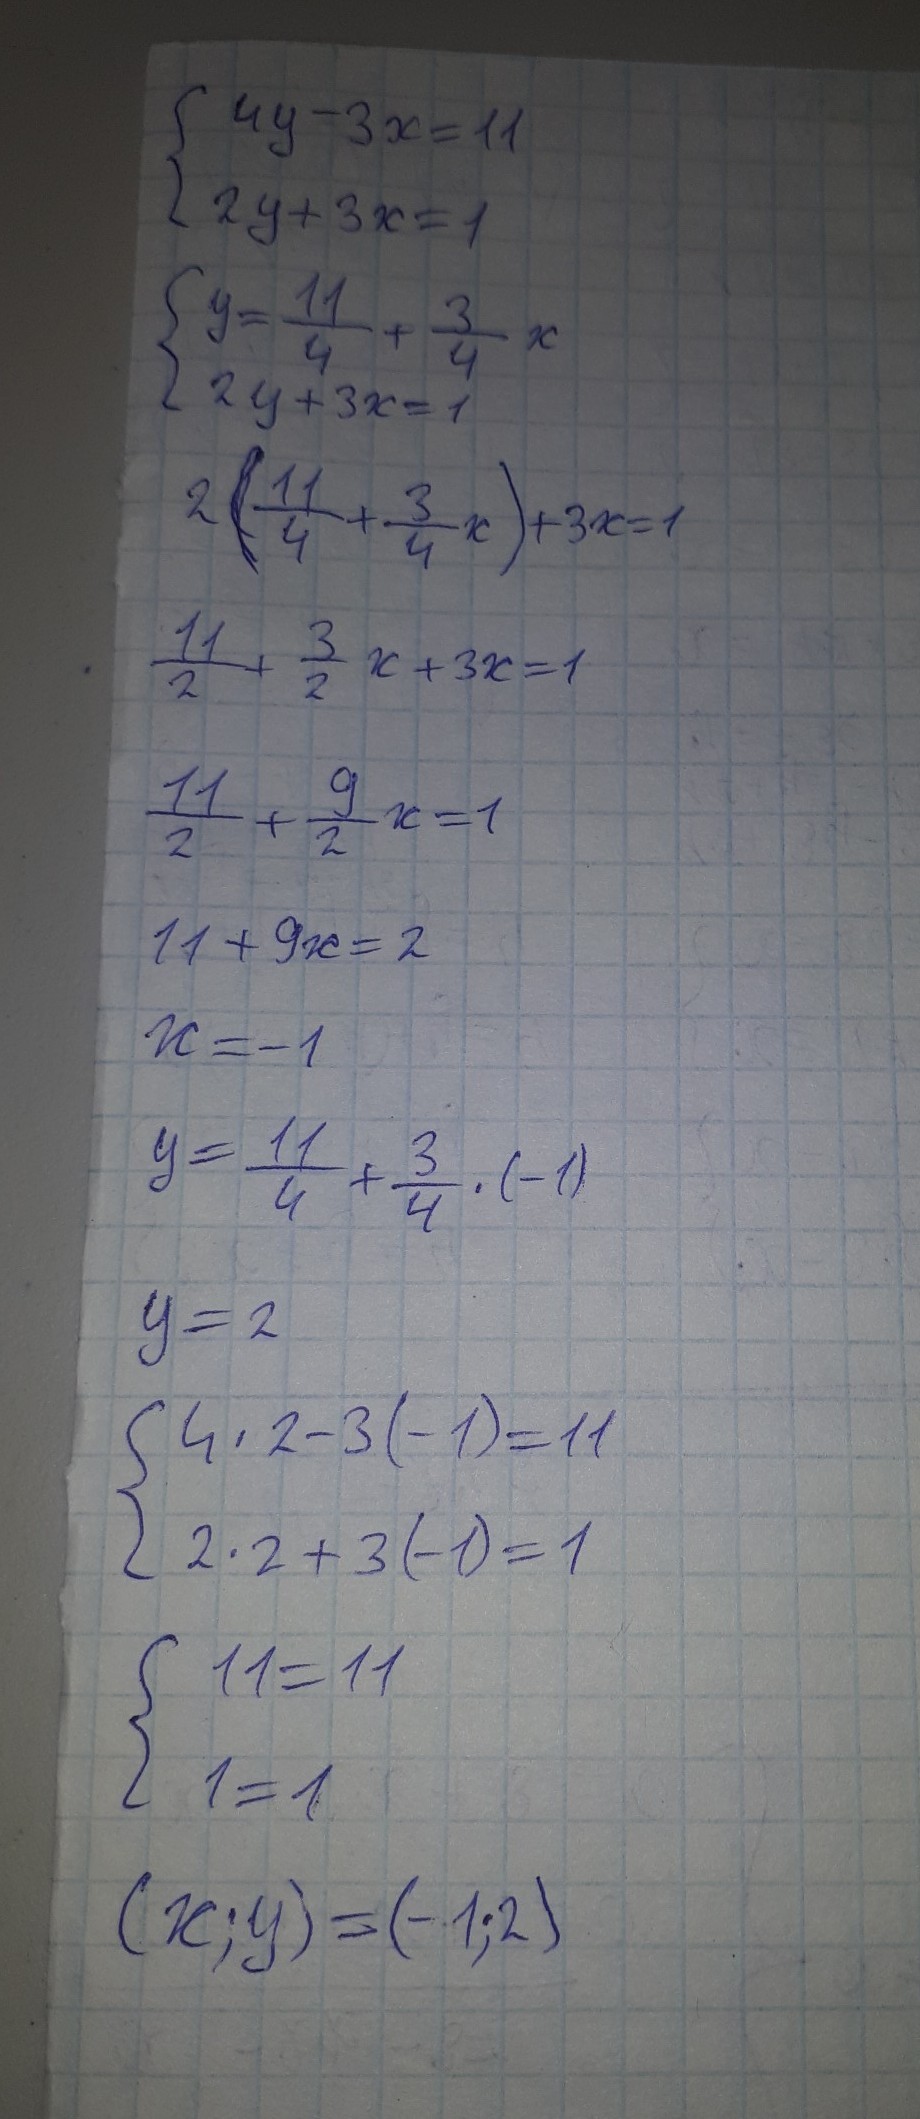 { 4y-3x=11
2y+3x=1
{ y= 11/4 + 3/4 x
2y+3x=1
2(11/4 + 3/4 x)+3x=1
11/2 + 3/2 x+3x=1
11/2 + 9/2 x=1
11+9x=2
x=-1
y= 11/4 + 3/4 · (-1)
y=2
{ 4·2-3(-1)=11
2·2+3(-1)=1
{ 11=11
1=1
(x;y)=(-1;2)